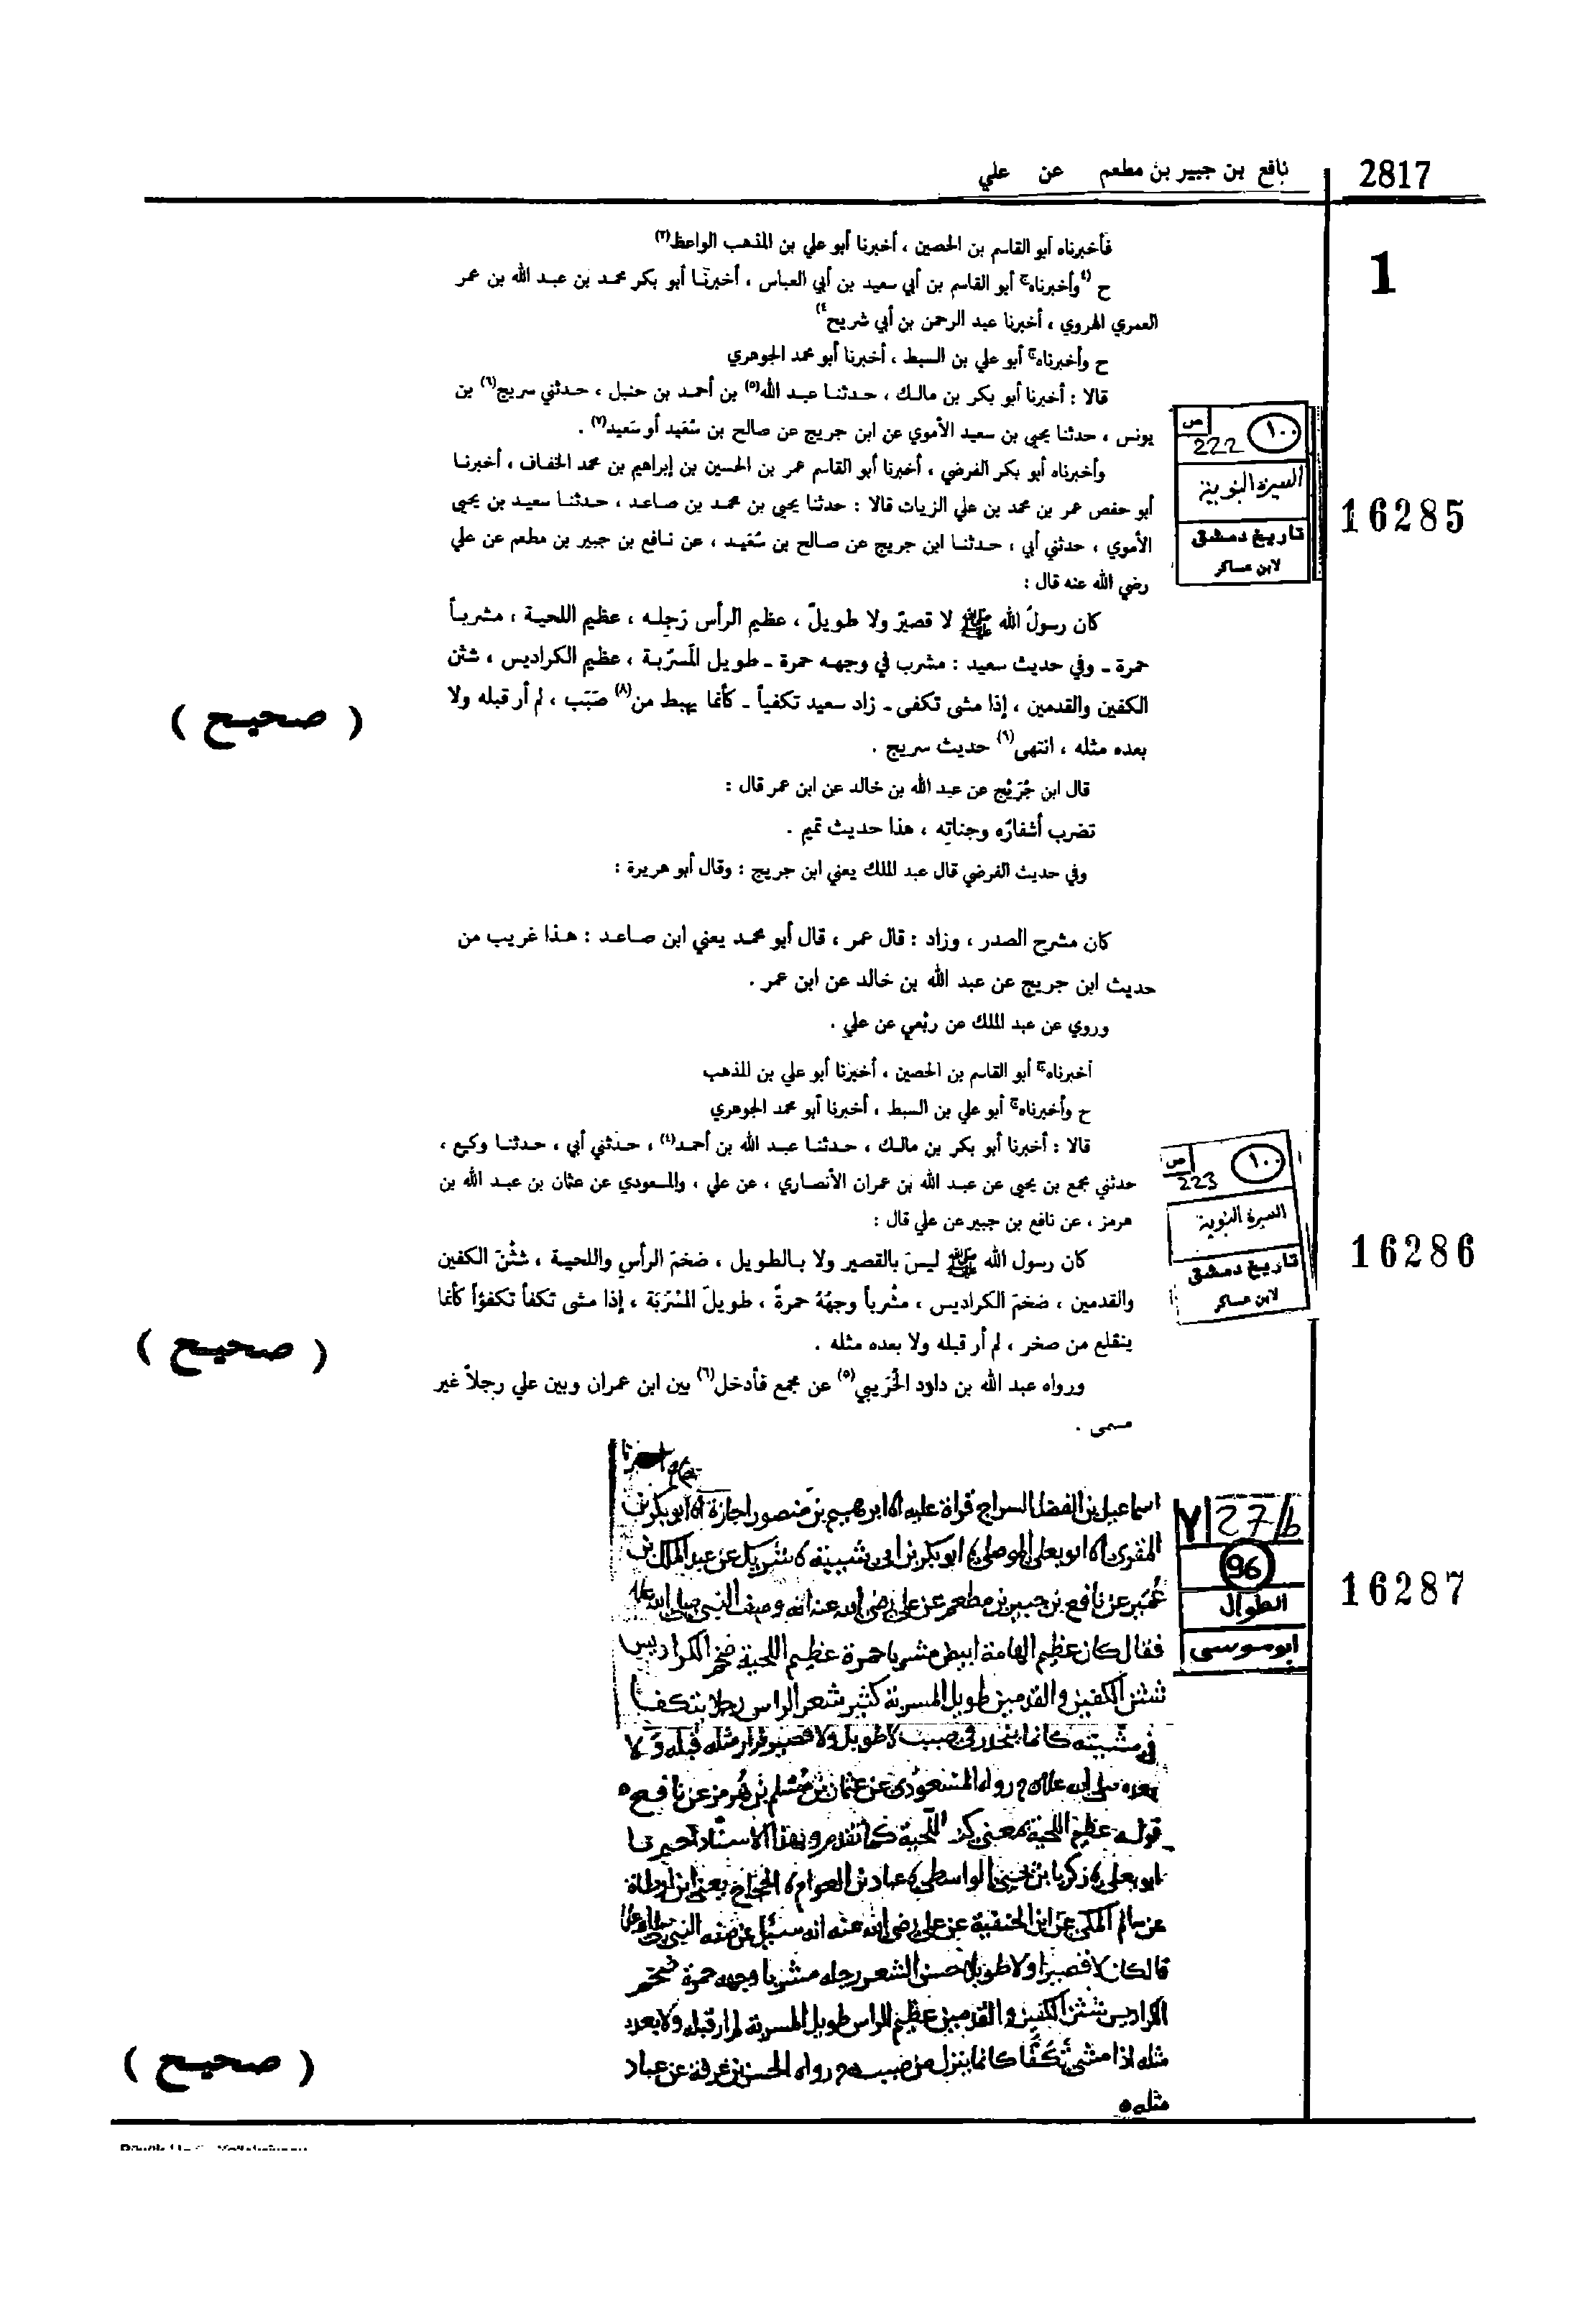 2817
نافع بن جبير بن مطعم عن علي
1
فأخبرناه أبو القاسم بن الحصين ، أخبرنا أبو علي بن المذهب الواعظ(٣)
ح (٤وأخبرناهج أبو القاسم بن أبي سعيد بن أبي العباس ، أخبرنا أبو بكر محمد بن عبد الله بن عمر
العمري الهروي ، أخبرنا عبد الرحمن بن أبي شريح٤)
ح وأخبرناهج أبو علي بن السبط ، أخبرنا أبو محمد الجوهري
قالا : أخبرنا أبو بكر بن مالك ، حدثنا عبد الله(٥) بن أحمد بن حنبل ، حدثني سريج(٦) بن
يونس ، حدثنا يحيى بن سعيد الأموي عن ابن جريج عن صالح بن سُعَيد أو سَعيد(٧) .
وأخبرناه أبو بكر الفرضي ، أخبرنا أبو القاسم عمر بن الحسين بن إبراهيم بن محمد الخفاف ، أخبرنا
أبو حفص عمر بن محمد بن علي الزيات قالا : حدثنا يحيى بن محمد بن صاعد ، حدثنا سعيد بن يحيى
الأموي ، حدثني أبي ، حدثنا ابن جريج عن صالح بن سُعَيد ، عن نافع بن جبير بن مطعم عن علي
رضي الله عنه قال :
كان رسولُ الله ﷺ لا قصيرٌ ولا طويلٌ ، عظيم الرأس رَجِله ، عظيم اللحية ، مشرباً
حمرة ـ وفي حديث سعيد : مشرب في وجهه حمرة ـ طويل المَسرُبة ، عظيم الكراديس ، شثن
الكفين والقدمين ، إذا مشى تكفى ـ زاد سعيد تكفياً ـ كأنما يهبط من(٨) صَبَب ، لم أر قبله ولا
بعده مثله ، انتهى(٦) حديث سريج .
قال ابن جُرَيْج عن عبد الله بن خالد عن ابن عمر قال :
تضرب أشفارُه وجناتِه ، هذا حديث تميم .
وفي حديث الفرضي قال عبد الملك يعني ابن جريج : وقال أبو هريرة :
كان مشرح الصدر ، وزاد : قال عمر ، قال أبو محمد يعني ابن صاعد : هذا غريب من
حديث ابن جريج عن عبد الله بن خالد عن ابن عمر .
وروي عن عبد الملك عن رِبْعي عن علي .
ص ١٠٠
222
السيرة النبوية
تاريخ دمشق
لابن عساكر
16285
( صحيح )
أخبرناهج أبو القاسم بن الحصين ، أخبرنا أبو علي بن المذهب
ح وأخبرناهج أبو علي بن السبط ، أخبرنا أبو محمد الجوهري
قالا : أخبرنا أبو بكر بن مالك ، حدثنا عبد الله بن أحمد(٤) ، حدثني أبي ، حدثنا وكيع ،
حدثني مجمع بن يحيى عن عبد الله بن عمران الأنصاري ، عن علي ، والمسعودي عن عثمان بن عبد الله بن
هرمز ، عن نافع بن جبير عن علي قال :
كان رسول الله ﷺ ليسَ بالقصير ولا بالطويل ، ضخمَ الرأسِ واللحية ، شثْنَ الكفين
والقدمين ، ضخمَ الكراديس ، مشْرباً وجهُهُ حمرةً ، طويلَ المَسْرُبَة ، إذا مشى تكفأ تكفؤاً كأنما
ينقلع من صخر ، لم أر قبله ولا بعده مثله .
ورواه عبد الله بن داود الخُرَيبي(٥) عن مجمع فأدخل(٦) بين ابن عمران وبين علي رجلاً غير
مسمى .
ص ١٠٠
223
السيرة النبوية
تاريخ دمشق
لابن عساكر
16286
( صحيح )
اسماعيل بن الفضل السراج قراة عليه انا ابرهيم بن منصور اجازة انا ابو بكر بن
المقرى انا ابو يعلى الموصلي نا ابو بكر بن ابى شيبة نا شريك عن عبد الملك بن
عُمَير عن نافع بن جبير بن مطعم عن على رضي الله عنه انه وصف النبي صلى الله عليه
فقال كان عظيم الهامة ابيض مشربا حمرة عظيم اللحية ضخم الكراديس
شثن الكفين والقدمين طويل المسربة كثير شعر الراس رجلا يتكفا
في مشيته كانما ينحدر في صبب لا طويل ولا قصير لم ار مثله قبله ولا
بعده صلى الله عليه رواه المسعودى عن عثمان بن مُسْلم بن هُرمز عن نافع
قوله عظيم اللحية بمعنى كث اللحية كما تقدم وبهذا الاسناد اخبرنا
ابو يعلى نا زكريا بن يحيى الواسطي نا عباد بن العوام نا الحجاج يعني ابن ارطاة
عن سالم المكي عن ابن الحنفية عن على رضي الله عنه انه سئل عن صفه النبي صلى الله عليه
قال كان لا قصيرا ولا طويلا حسن الشعر رجله مشربا وجهه حمرة ضخم
الكراديس شثن الكفين والقدمين عظيم الراس طويل المسربة لم ار قبله ولا بعده
مثله اذا مشى تَكَفَّا كانما ينزل من صبب رواه الحسن بن عرفة عن عباد
مثله
٧ 27/b
96
الطوال
ابو موسى
16287
( صحيح )